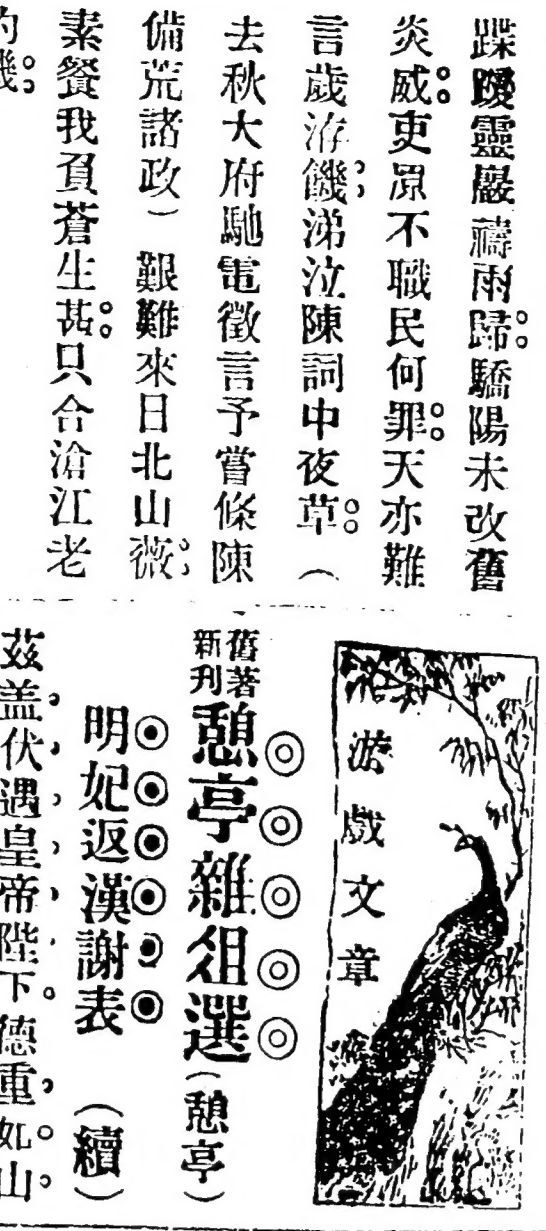 蹀躞靈巖禱雨歸驕陽未改舊
炎威吏原不職民何罪天亦難
言歲洊饑涕泣陳詞中夜草（
去秋大府馳電徵言予嘗條陳
備荒諸政）艱難來日北山薇
素餐我負蒼生甚只合滄江老
游戲文章
舊著新刊憩亭雜俎選（憩亭）
明妃返漢謝表（續）
茲盖伏遇皇帝陛下。德重如山。